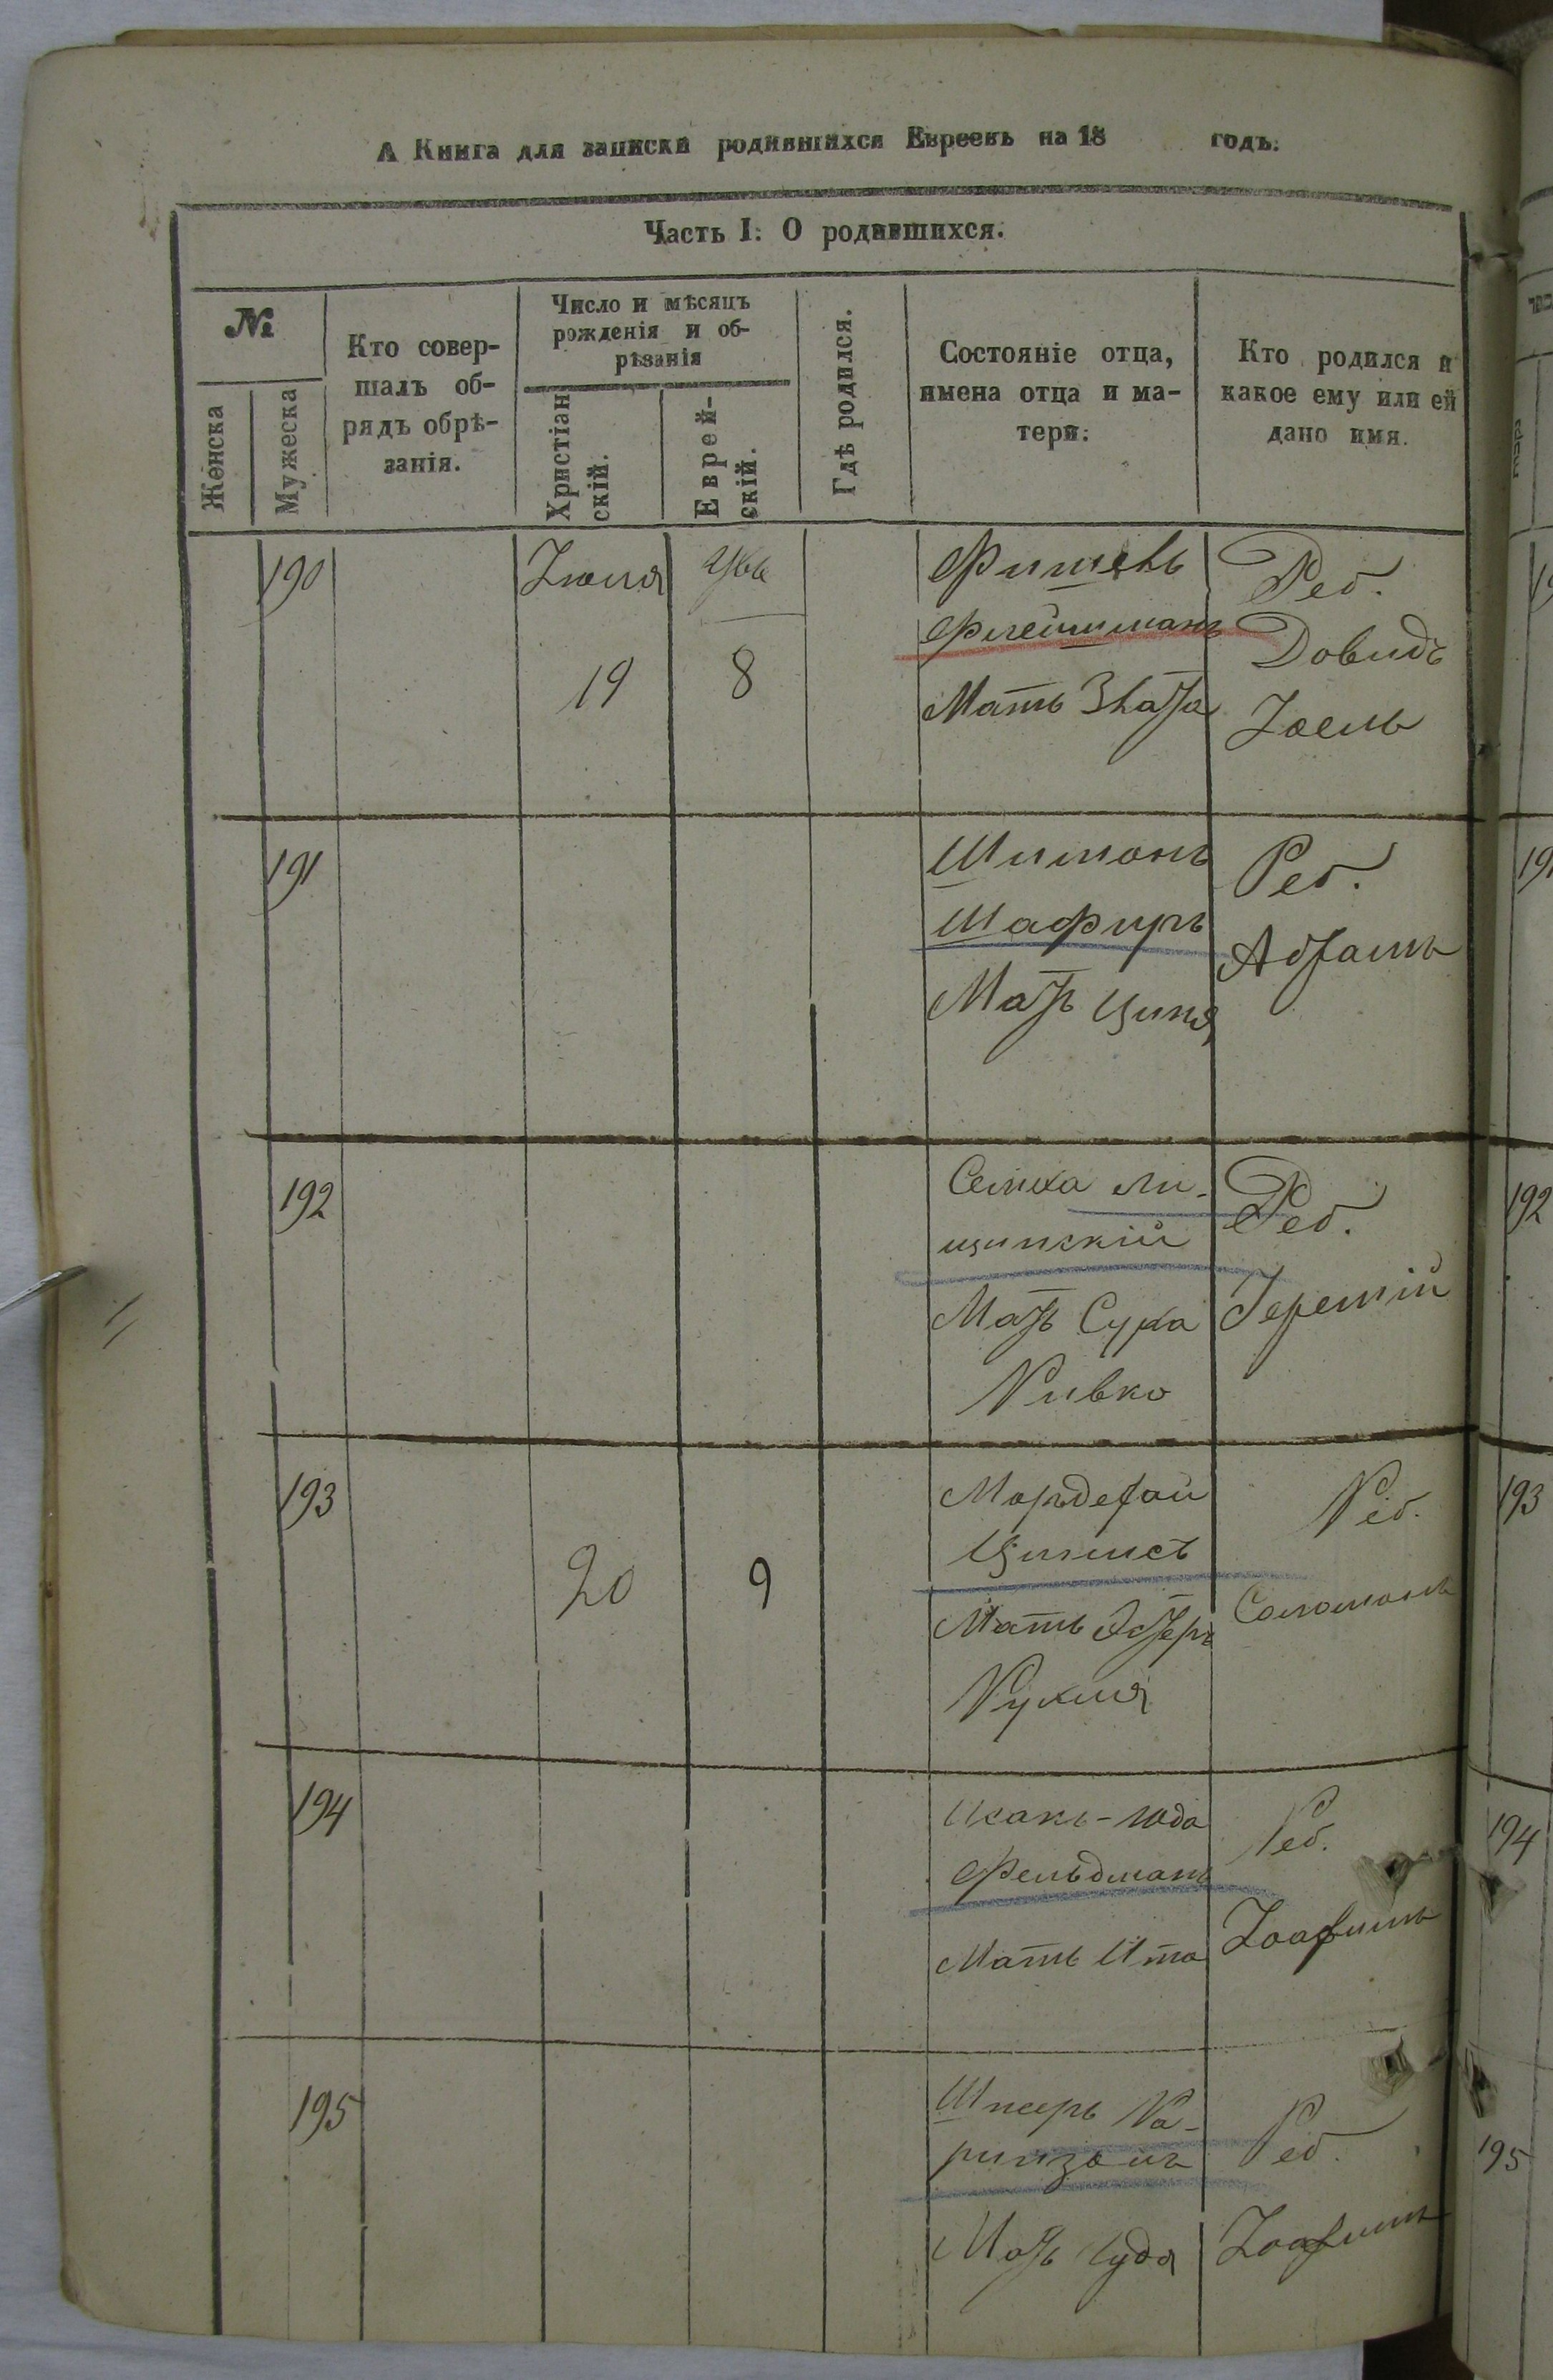 А Книга для записки родившихся Евреевъ на 18 годъ.
Часть I. О родившихся.
№
Женска
Мужеска
Кто совер-
шалъ об-
рядъ обрѣ-
занія.
Число и мѣсяцъ
рожденія и об-
рѣзанія
Христіан
скій.
Еврей-
скій.
Гдѣ родился.
Состояніе отца,
имена отца и ма-
тери.
Кто родился и
какое ему или ей
дано имя.
190
Іюля
19
8
Фишель
Флейшманъ
Мать Злата
Реб.
Довидъ
Іоель
191
Шимонъ
Шафиръ
Мать Ципя
Реб.
Абрамъ
192
Семха Ли-
щинскій
Мать Сура
Ривко
Реб.
Іеремій
193
20
9
Мордехай
Мать Эстеръ
Рухля
Реб.
Соломонъ
194
Исакъ-Юда
Фельдманъ
Мать Ита
Реб.
Іоахимъ
195
Мать Іудя
Реб.
Іоахимъ
191
192
193
194
195